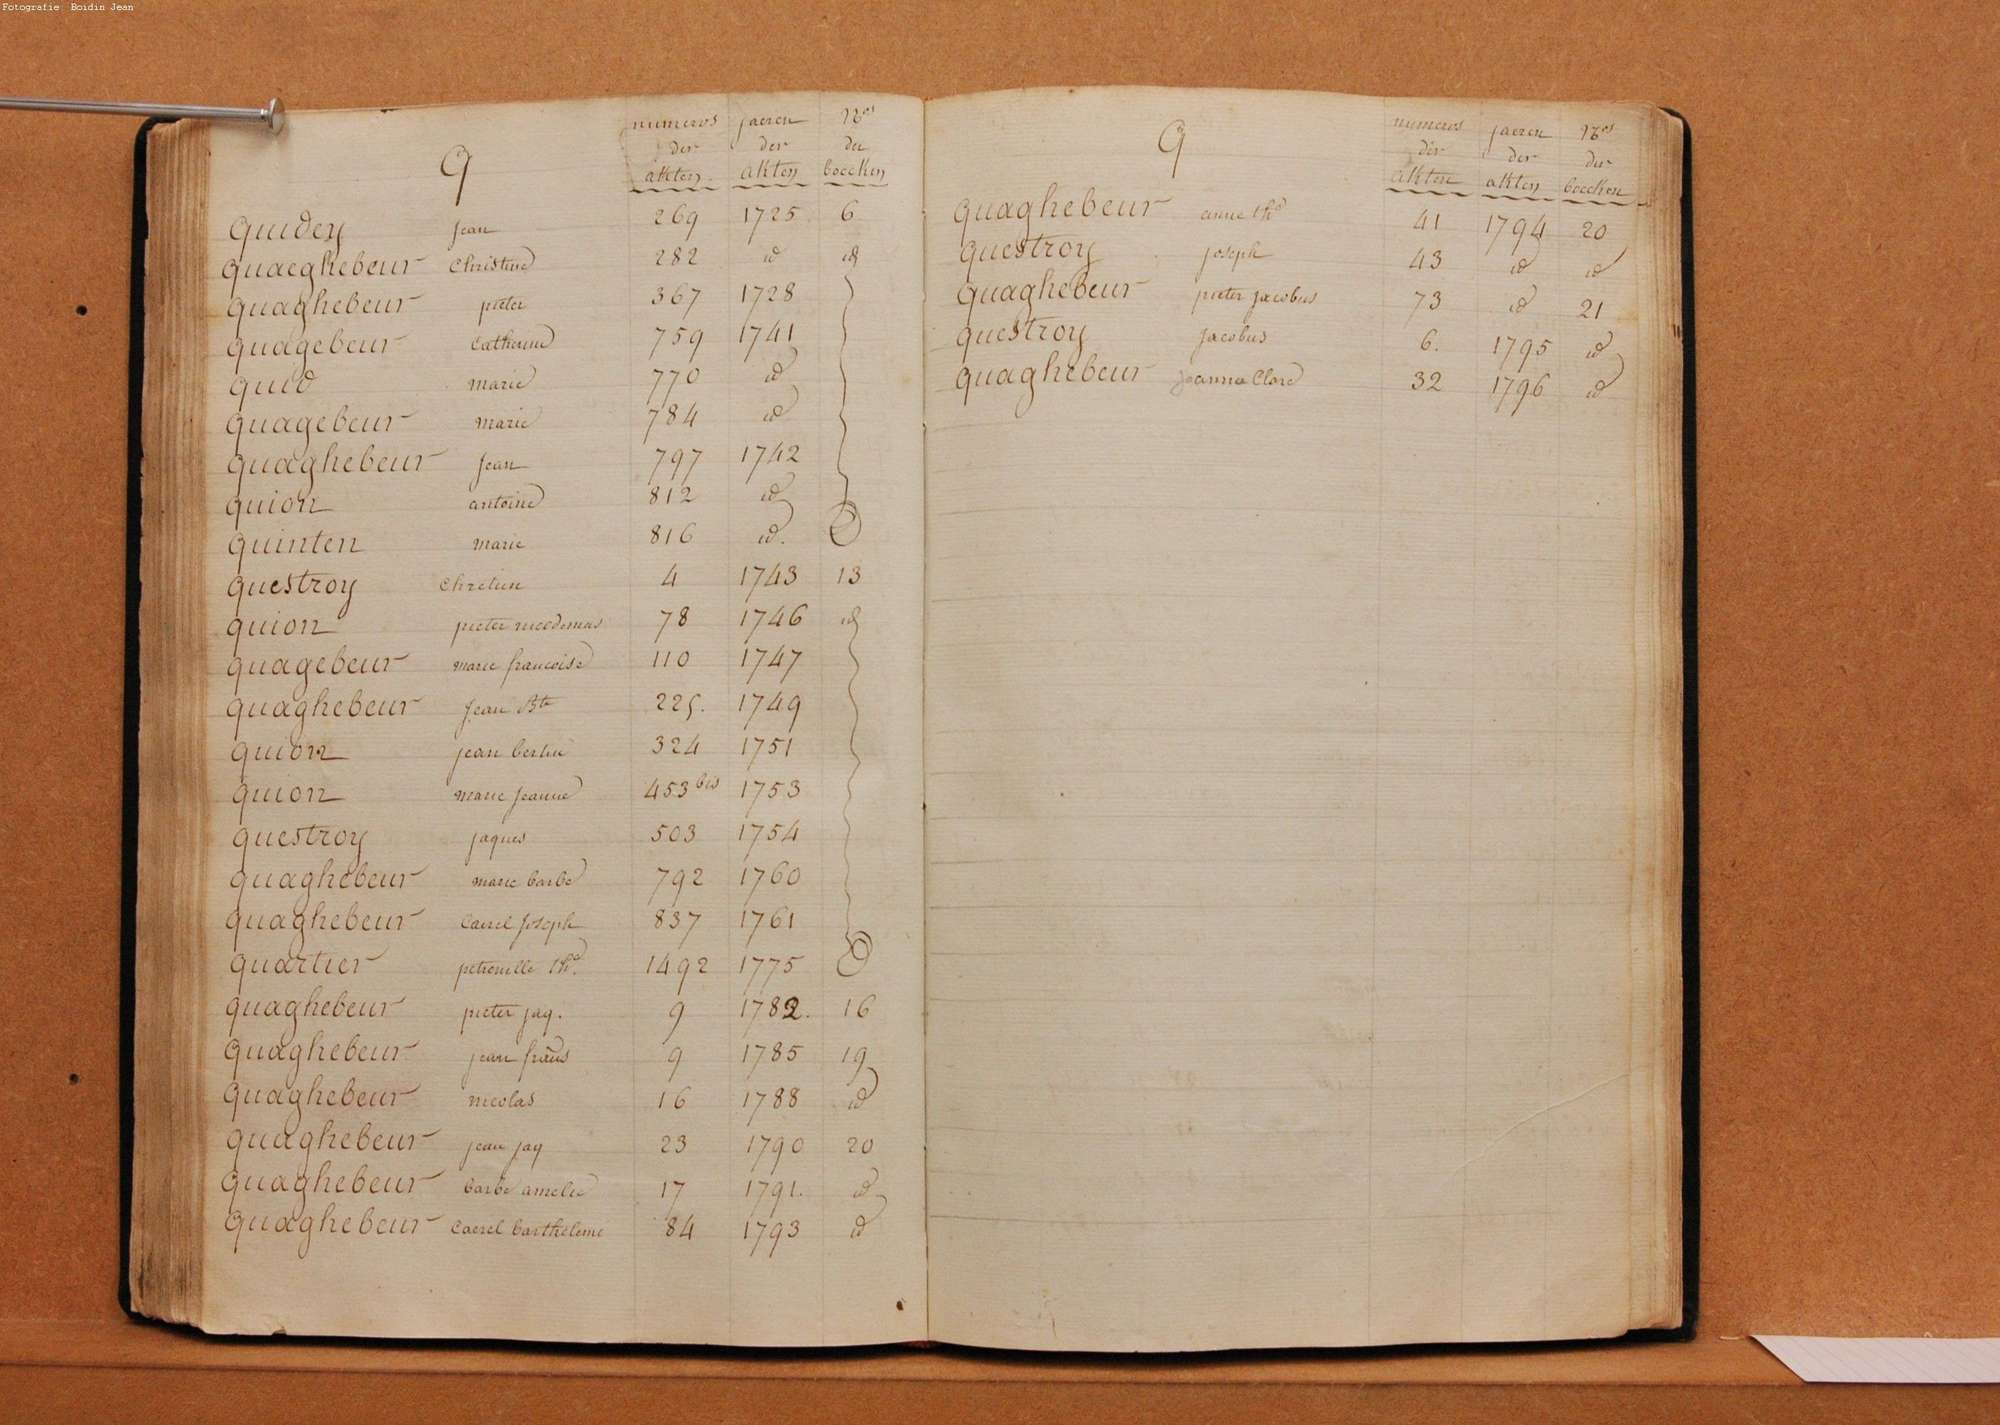 Fotografie Boidin Jean
Q numeros der akten jaeren der akten Nos der boecken
quidey jean 269 1725 6
quaeghebeur Christine 282 id id
quaghebeur pieter 367 1728
quagebeur Catherine 759 1741
quid marie 770 id
quagebeur marie 784 id
quaghebeur jean 797 1742
quion antoine 812 id
quinten marie 816 id.
questroy Chretien 4 1743 13
quion pieter nicodemus 78 1746 id
quagebeur marie francoise 110 1747
quaghebeur jean Bte 225. 1749
quion jean bertin 324 1751
quion marie jeanne 453 bis 1753
questroy jaques 503 1754
quaghebeur marie barbe 792 1760
quaghebeur Carel joseph 837 1761
quartier petronelle the. 1492 1775
quaghebeur pieter jaq. 9 1782. 16
quaghebeur jean frans 9 1785 19
quaghebeur nicolas 16 1788 id
quaghebeur jean jaq 23 1790 20
quaghebeur barbe amelie 17 1791. id
quaghebeur Caerel barthelemé 84 1793 id
Q numeros der akten jaeren der akten Nos der boecken
quaghebeur anne the 41 1794 20
questroy joseph 43 id id
quaghebeur pieter jacobus 73 id 21
questroy jacobus 6. 1795 id
quaghebeur joanna Clare 32 1796 id